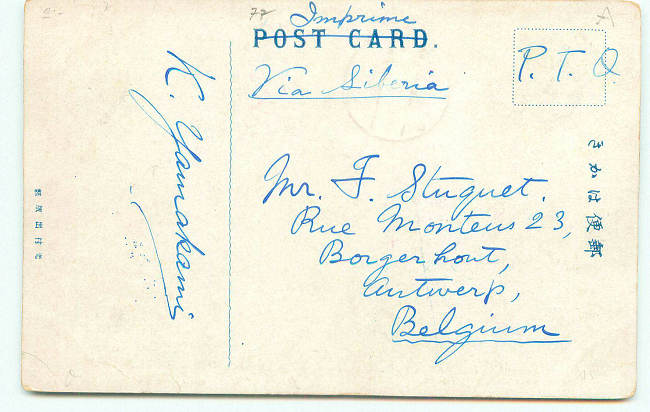 Imprime
POST CARD.
Via Siberia
P. T. O.
K. Yamakami
Mr. F. Stuquet.
Rue Monteus 23,
Borgerhout,
Antwerp,
Belgium
きかは便郵